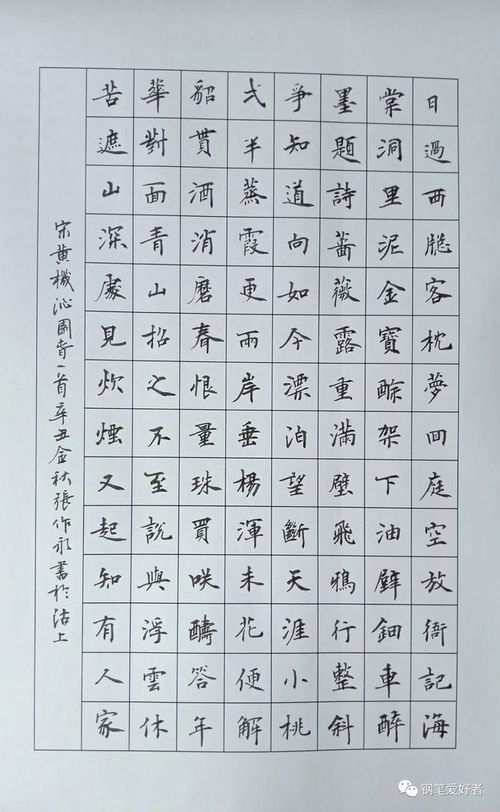 日過西牕客枕夢囘庭空放衙記海
棠洞里泥金寶酴架下油壁鈿車醉
墨題詩薔薇露重滿壁飛鴉行整斜
爭知道向如今漂泊望斷天涯小桃
弍半蒸霞更兩岸垂楊渾未花便解
貂貰酒消磨春恨量珠買咲醻答年
華對面青山招之不至說與浮雲休
苦遮山深處見炊煙又起知有人家
宋黄機沁園春一首辛丑金秋張作永書於沽上
钢笔爱好者